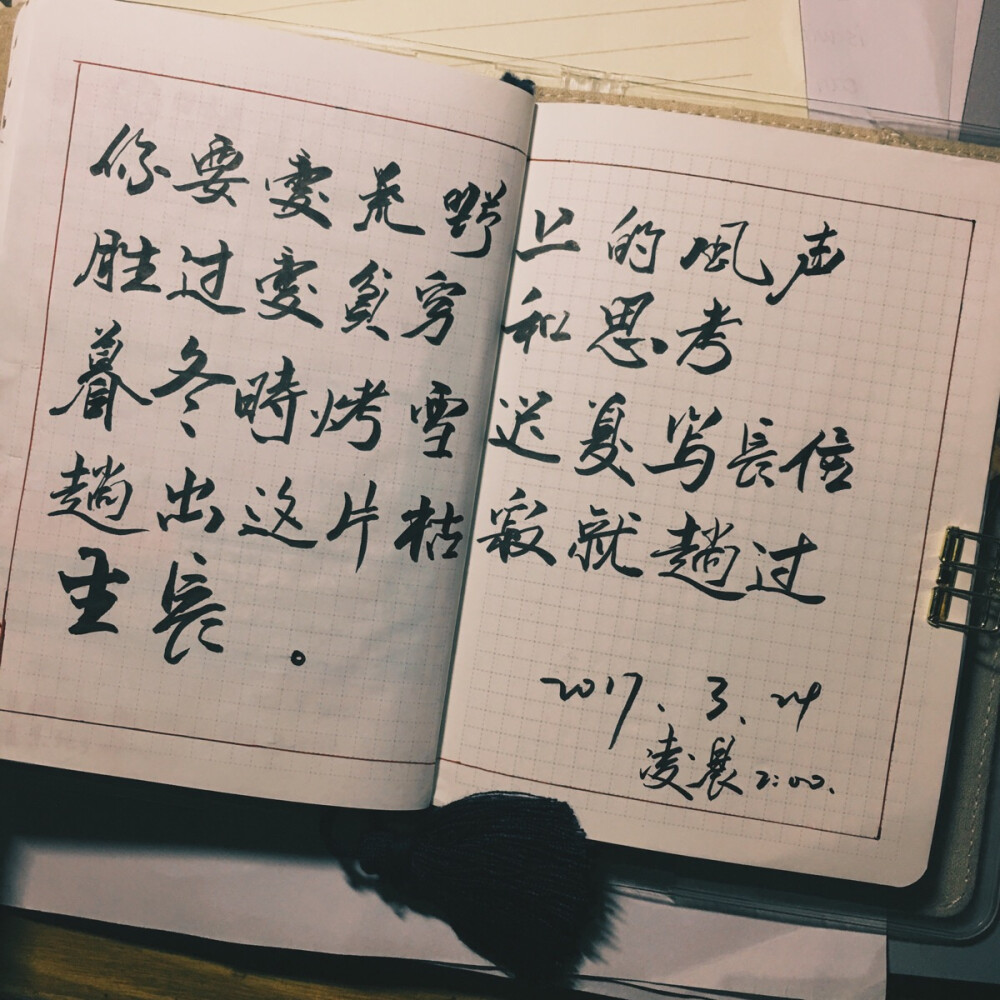 你要爱荒野上的風声
胜过爱贫穷和思考
暮冬時烤雪迟夏写長信
趟出这片枯寂就趟过
生長。
2017.3.24
凌晨2:00.